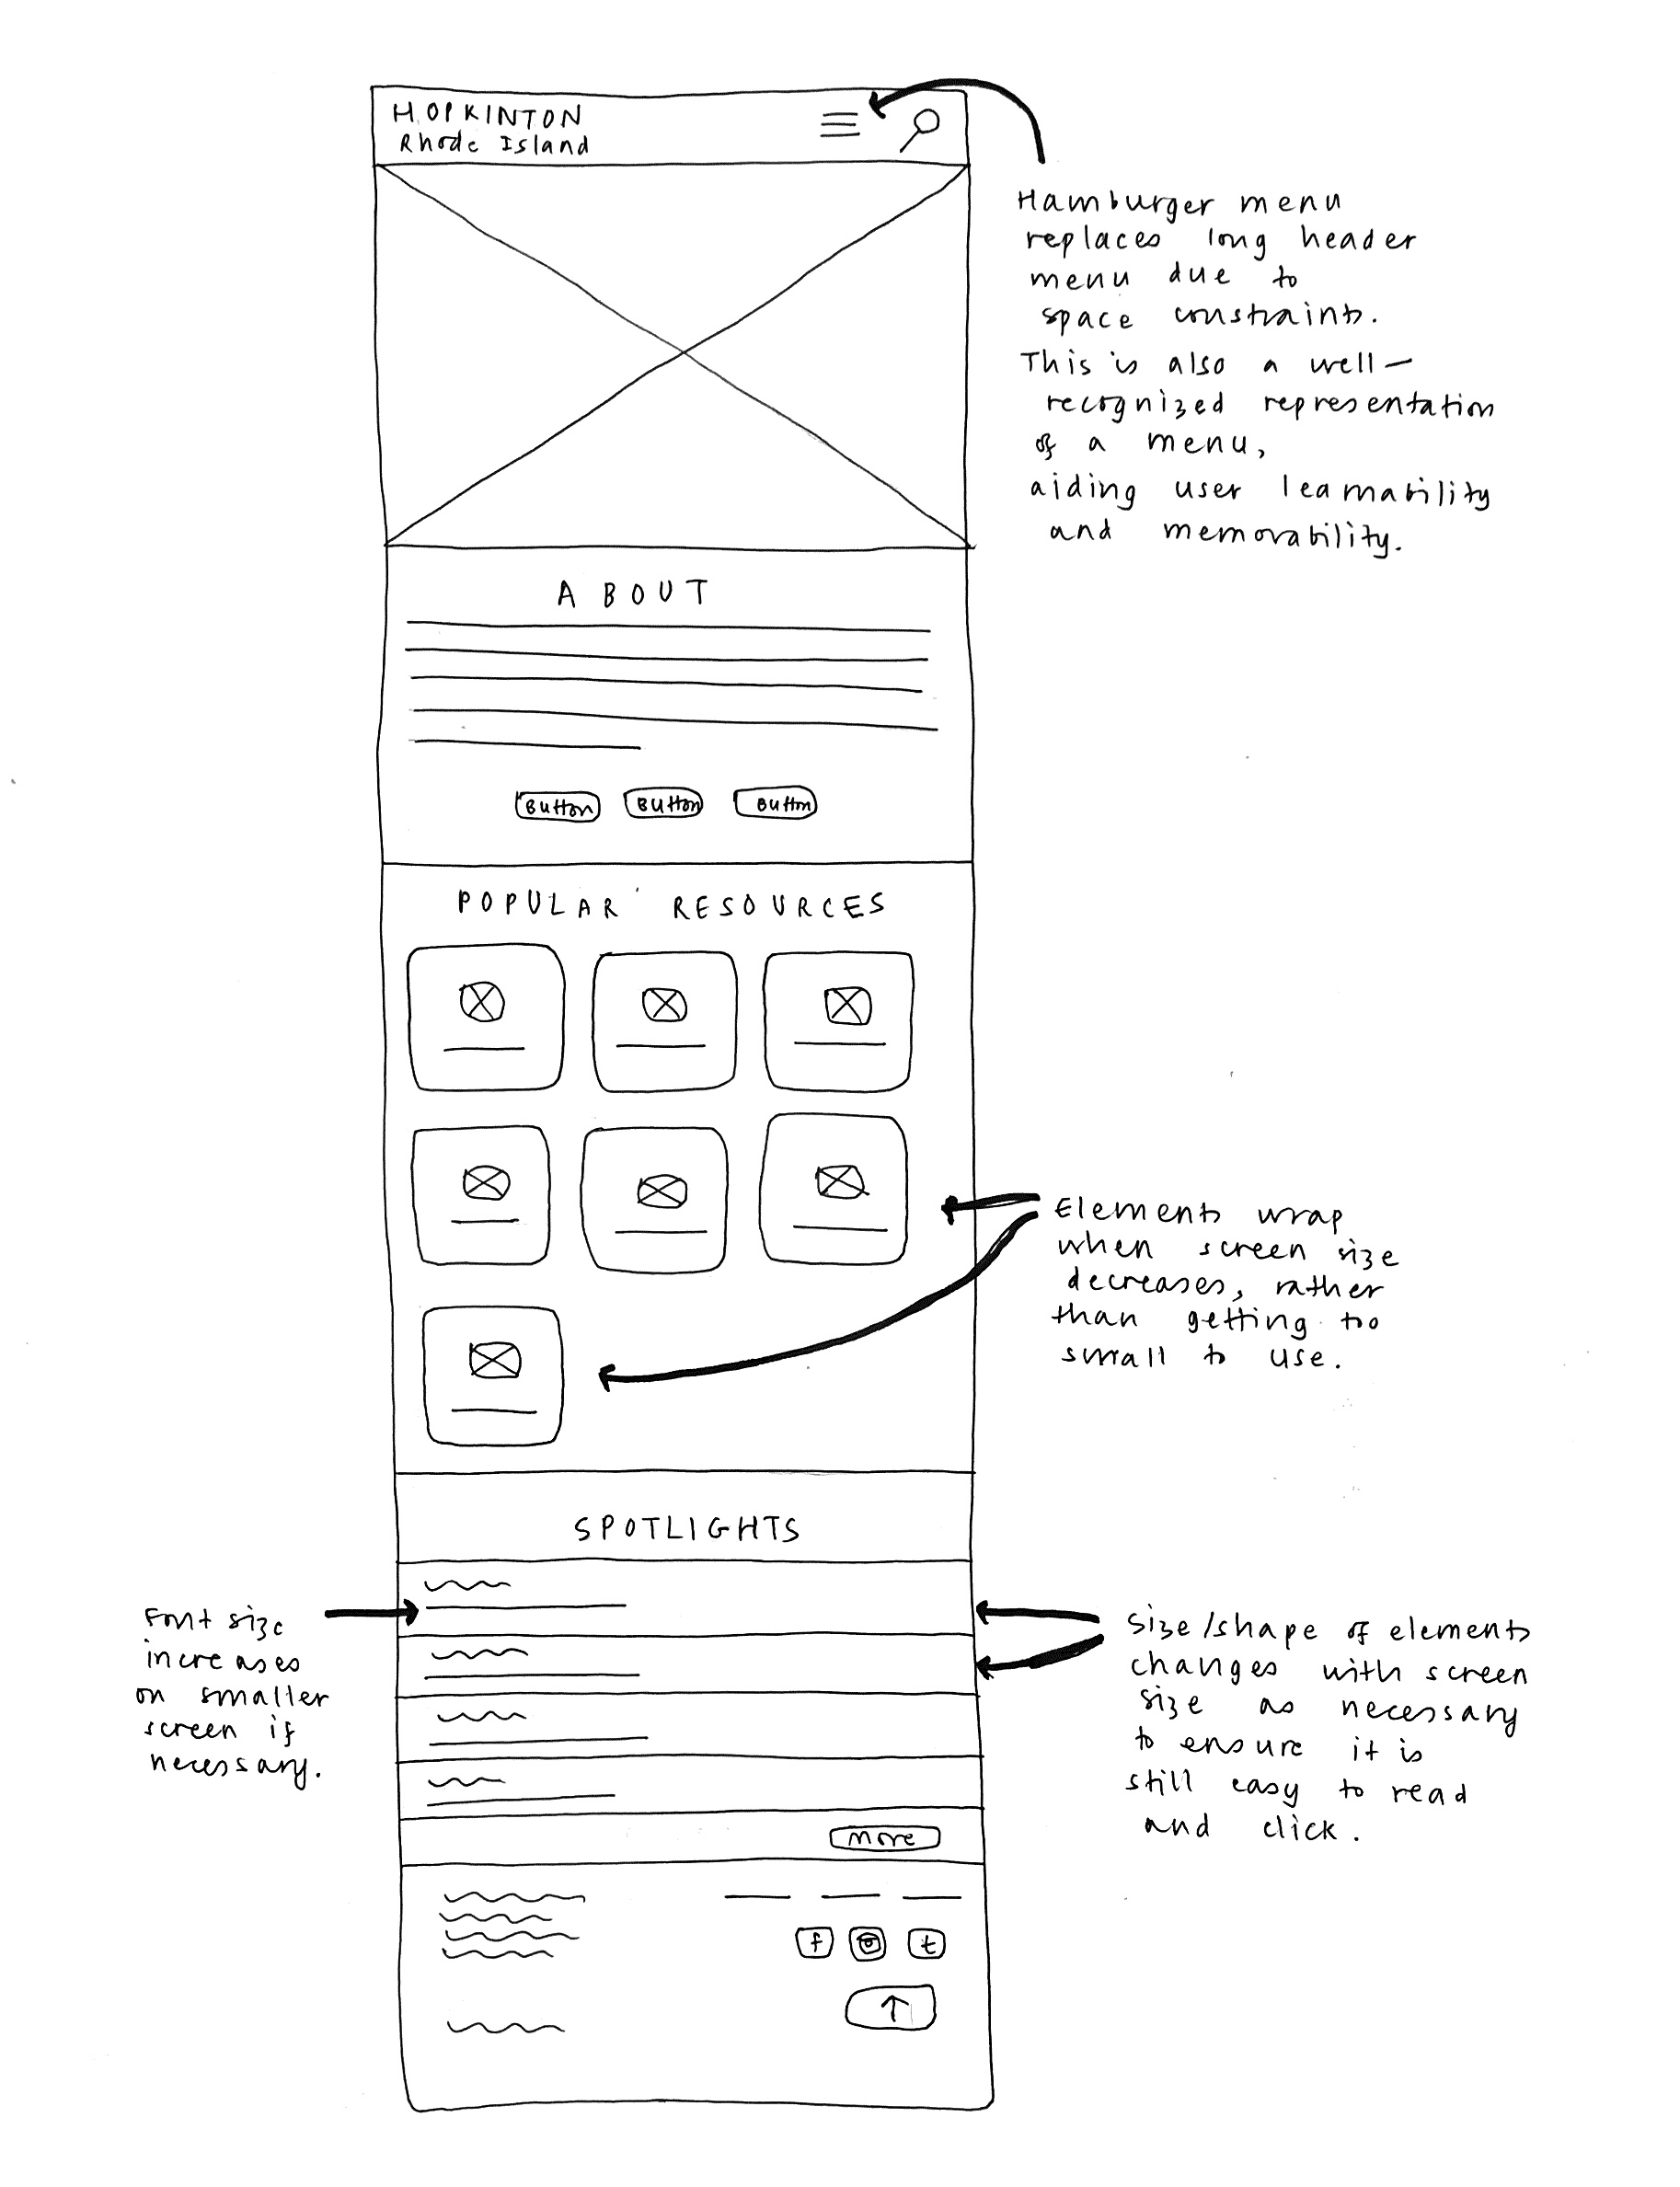 HOPKINTON
Rhode Island
Hamburger menu
replaces long header
menu due to
space constraints.
This is also a well-
recognized representation
of a menu,
aiding user learnability
and memorability.
ABOUT
Button Button Button
POPULAR RESOURCES
Elements wrap
when screen size
decreases, rather
than getting too
small to use.
SPOTLIGHTS
Font size
increases
on smaller
screen if
necessary.
Size/shape of elements
changes with screen
size as necessary
to ensure it is
still easy to read
and click.
more
f t